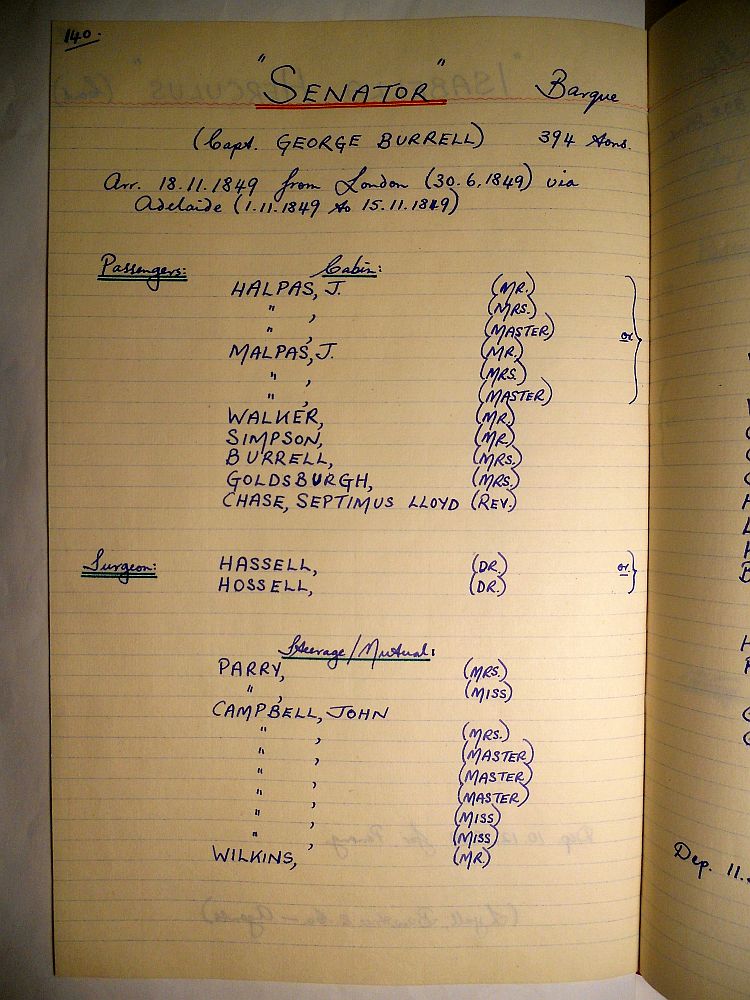 140.
"SENATOR" Barque
(Capt. GEORGE BURRELL) 394 tons.
Arr. 18.11.1849 from London (30.6.1849) via
Adelaide (1.11.1849 to 15.11.1849)
Passengers: Cabin:
HALPAS, J. (MR.)
" , (MRS.)
" , (MASTER) or
MALPAS, J. (MR.)
" , (MRS.)
" , (MASTER)
WALKER, (MR.)
SIMPSON, (MR.)
BURRELL, (MRS.)
GOLDSBURGH, (MRS.)
CHASE, SEPTIMUS LLOYD (REV.)
Surgeon: HASSELL, (DR.) or
HOSSELL, (DR.)
Steerage/Mutual:
PARRY, (MRS.)
" , (MISS)
CAMPBELL, JOHN
" , (MRS.)
" , (MASTER)
" , (MASTER)
" , (MASTER)
" , (MISS)
" , (MISS)
WILKINS, (MR.)
Dep. 11.